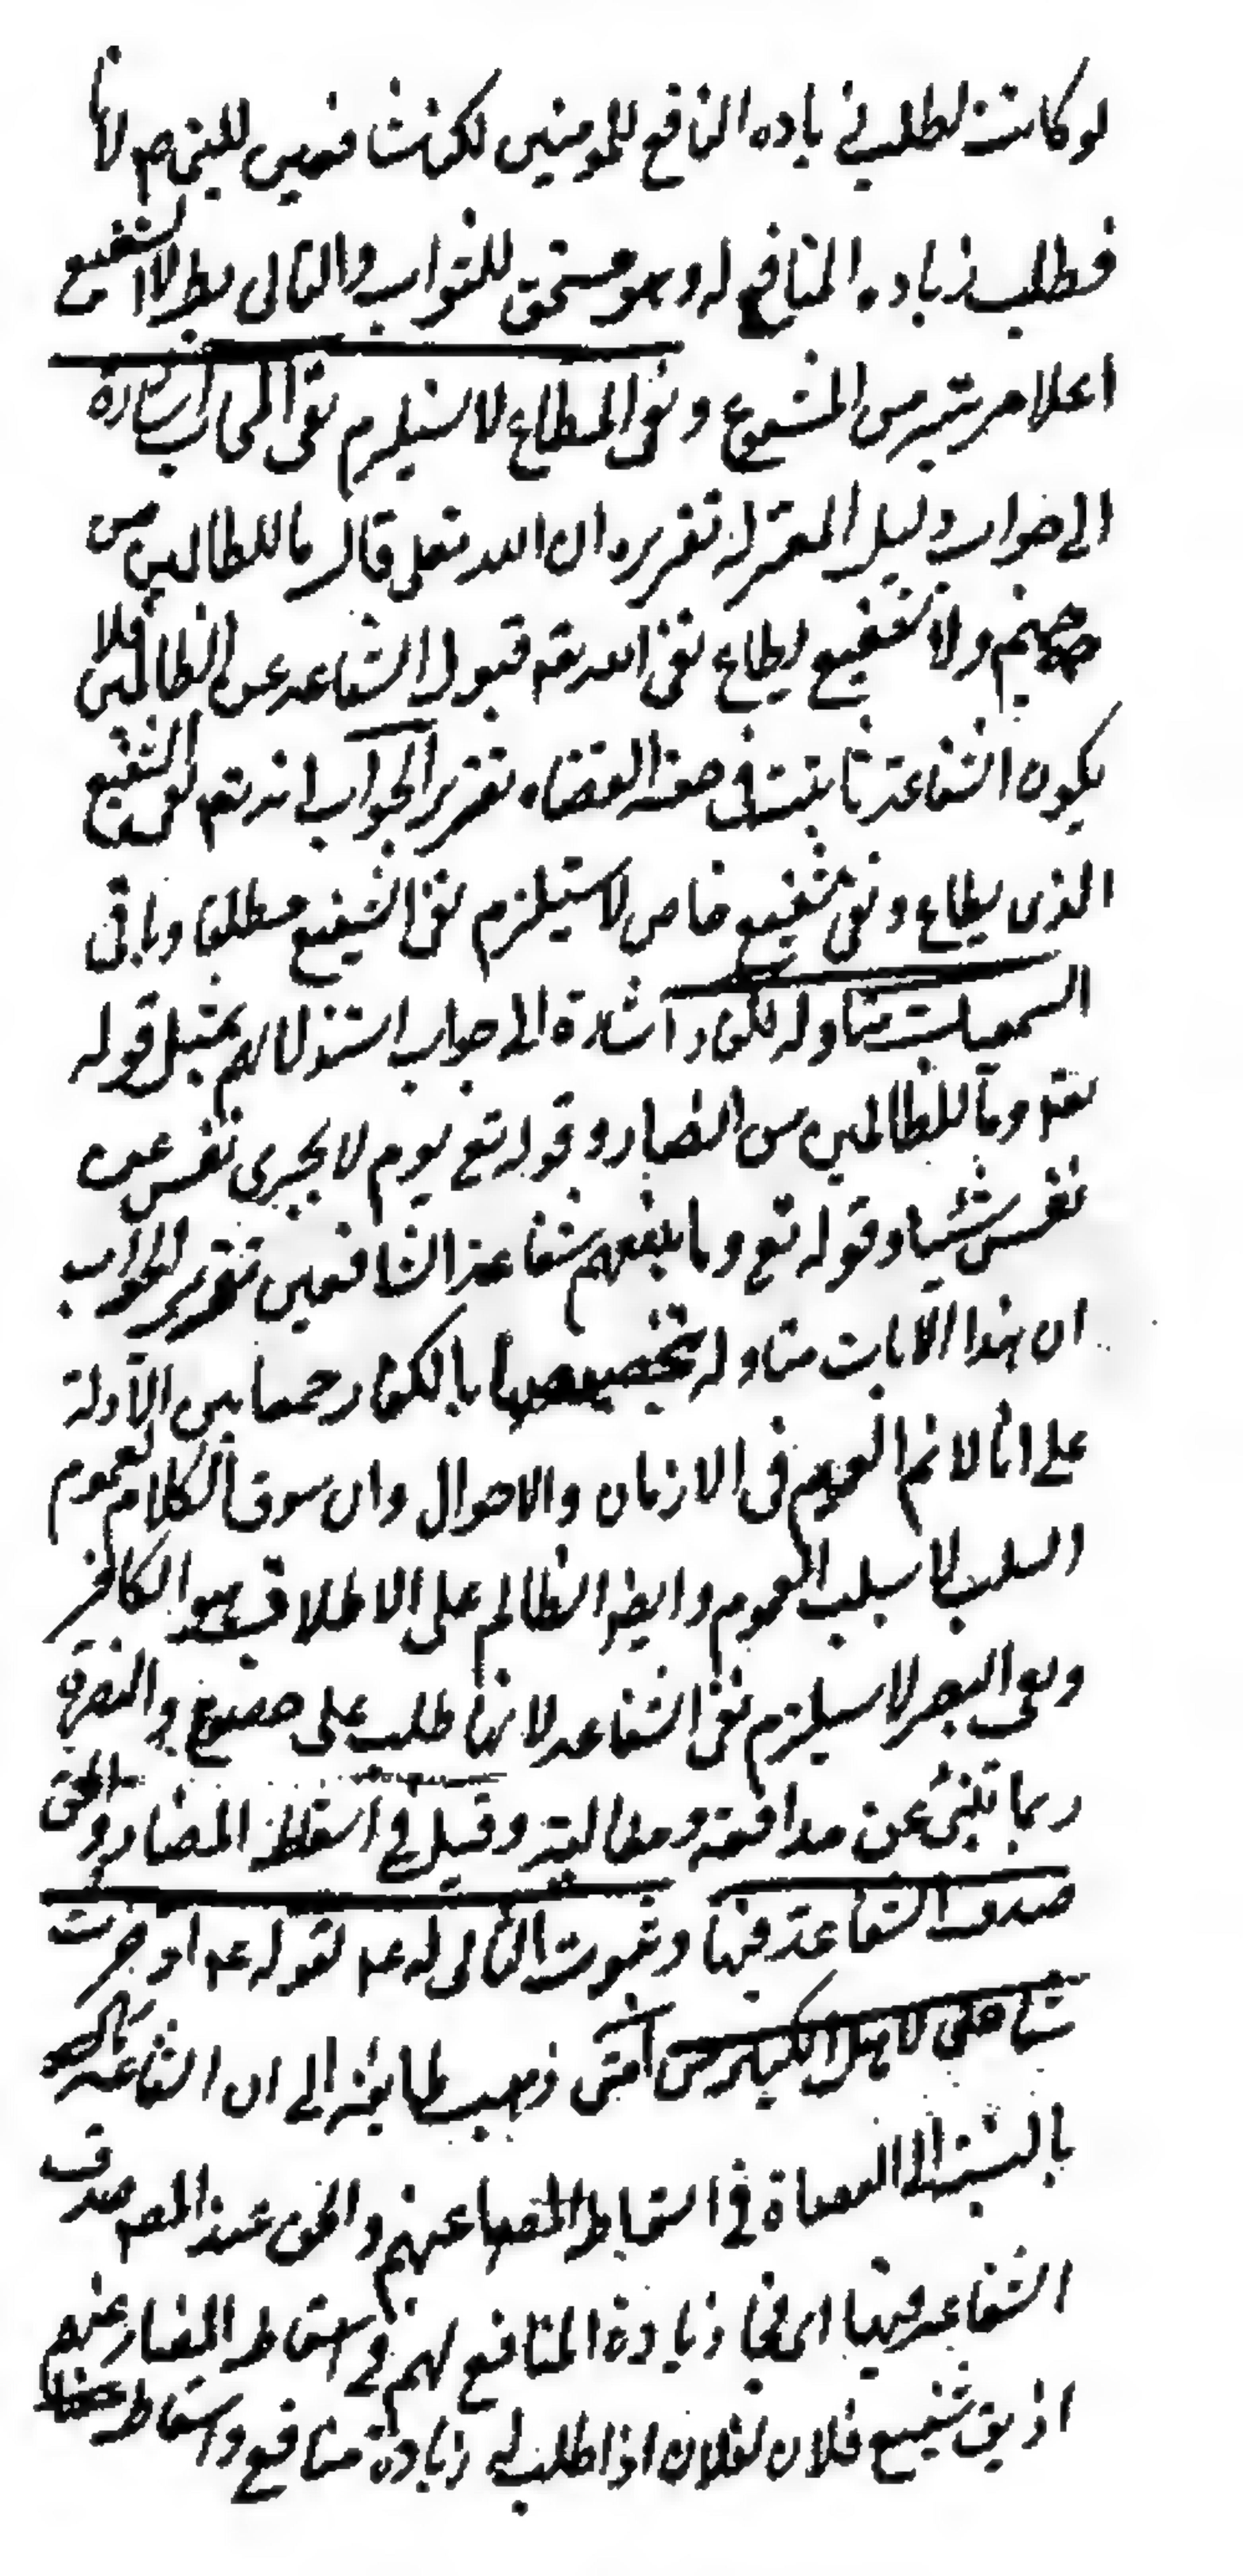 لو كانت لطلب زياده النافع للمومنين لكن شافعين للنبي صم لانا
فطلب زياده المنافع له وهو مستحق للثواب والتالى بط لان الشفيع
اعلا مرتبة من المشفوع ونفى المطاع لا يستلزم نفى المجاب اشارة
الى جواب دليل المعتزله تقريره ان الله تعلى قال ما للظالمين من
حميم ولا شفيع يطاع نفى الله تعه قبول الشفاعه عن الظالمين فلا
يكون الشفاعة ثابتة فى حق العصاه تقرير الجواب انه تعه نفى الشفيع
الذى يطاع ونفى شفيع خاص لا يستلزم نفى الشفيع مطلقا وباقى
السمعيات متاوله بالكفار اشارة الى جواب استدلالهم بمثل قوله
تعه وما للظالمين من انصار وقوله تع يوم لا يجزى نفس عن
نفس شيئا وقوله تع وما ينفعهم شفاعة الشافعين تقرير الجواب
ان هذا الايات متاوله بتخصيصها بالكفار جمعا بين الادلة
على انا لا نم العموم فى الازمان والاحوال وان سوق الكلام لعموم
السلب لا سلب العموم وايضا الظالم على الاطلاق هو الكافر
ونفى النصر لا يستلزم نفى الشفاعه لانها طلب على خضوع والنصرة
ربما تنبئ عن مدافعة ومغالبة وقيل فى اسقاط المضار والحق
صدق الشفاعة فيها وثبوت الثانى له عه لقوله عه ادخرت
شفاعتى لاهل الكبائر من امتى ذهب طايفة الى ان الشفاعه
بالنسبة الى العصاة فى اسقاط المضار عنهم والحق عند المصه صدق
الشفاعه فيها اى فى زيادة المنافع لهم وفى اسقاط المضار عنهم
اذ يق شفيع فلان لفلان اذا طلب له زيادة منافع واسقاط مضار